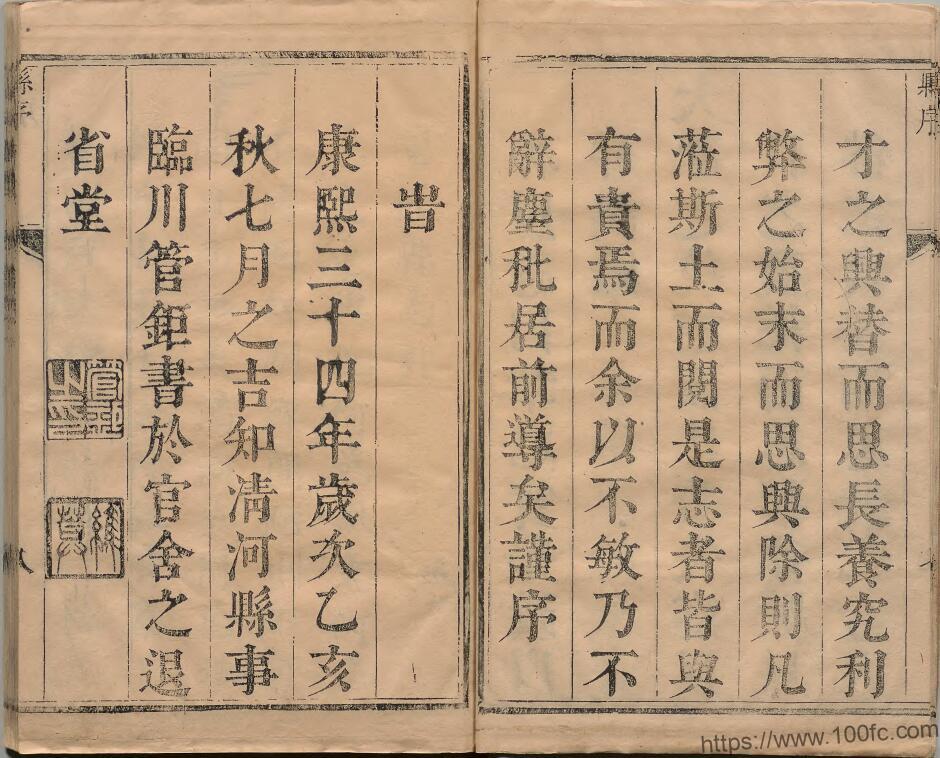 縣序
才之興替而思長養究利
弊之始末而思興除則凡
蒞斯土而閱是志者皆與
有責焉而余以不敏乃不
辭塵秕居前導矣謹序
旹
康熙三十四年歲次乙亥
秋七月之吉知淸河縣事
臨川管鉅書於官舍之退
省堂
縣序
八
https://www.100fc.com